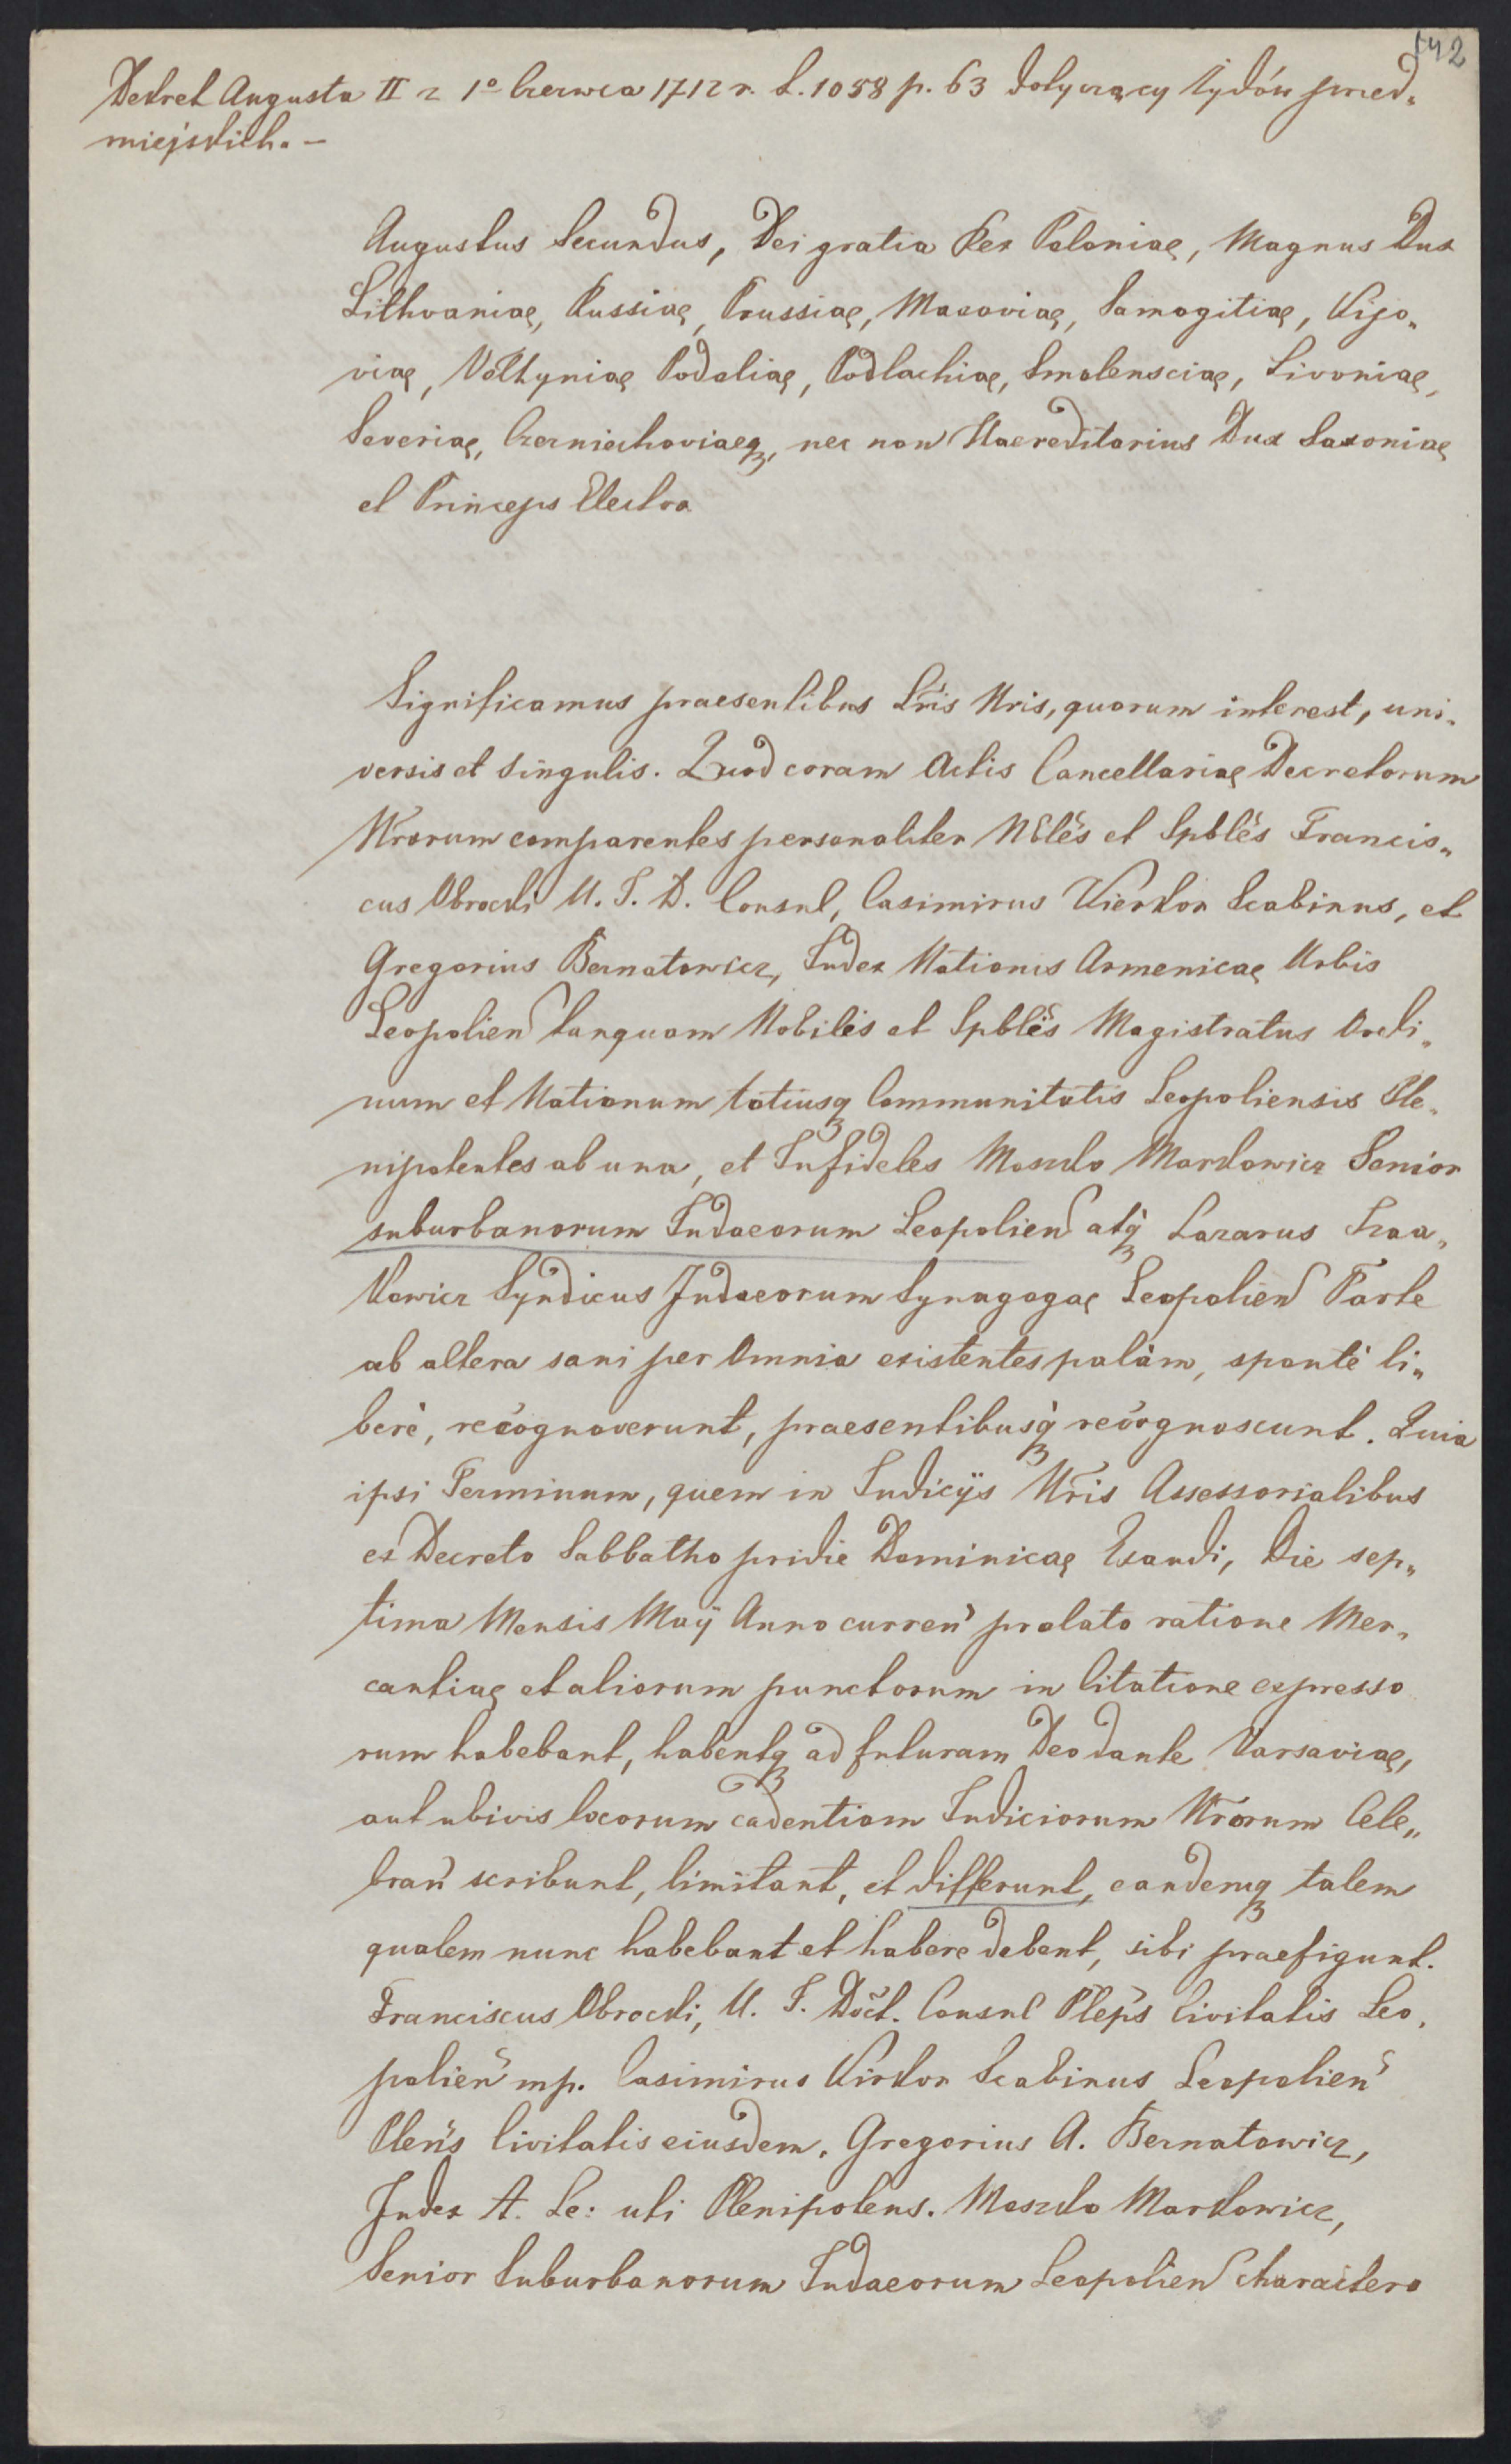 142
Dekret Augusta II z 1º Czerwca 1712 r. L. 1058 p. 63 dotyczący Żydów przed„
miejskich. –
Augustus Secundus, Dei gratia Rex Poloniae, Magnus Dux
Lithvaniae, Russiae, Prussiae, Masoviae, Samogitiae, Kijo„
viae, Volhyniae Podoliae, Podlachiae, Smolensciae, Livoniae,
Severiae, Czerniechoviaeq, nec non Haereditarius Dux Saxoniae
et Princeps Elector
Significamus praesentibus Lr̃is Nris, quorum interest, uni„
versis et singulis. Quod coram Actis Cancellariae Decretorum
Nrorum comparentes personaliter Nbles et Spbles Francis„
cus Obrocki U. J. D. Consul, Casimirus Kierkor Scabinus, et
Gregorius Bernatowicz, Judex Nationis Armenicae Urbis
Leopolien tanquam Nobiles et Spbles Magistratus Ordi„
num et Nationum totiusq Communitatis Leopoliensis Ple„
nipotentes ab una, et Infideles Moszko Markowicz Senior
suburbanorum Judaeorum Leopolien atq Lazarus Izaa„
kowicz Syndicus Judaeorum Synagogae Leopolien Parte
ab altera sani per Omnia existentes palàm, spontè li„
berè, recognoverunt, praesentibusq recognoscunt. Quia
ipsi Terminum, quem in Judicÿs Nris Assessorialibus
ex Decreto Sabbatho pridie Dominicae Exaudi, Die sep„
tima Mensis Maÿ Anno curren prolato ratione Mer„
cantiae et aliorum punctorum in Citatione expresso
rum habebant, habentq ad futuram Deo dante Varsaviae,
aut ubivis locorum cadentiam Judiciorum Nrorum Cele„
bran scribunt, limitant, et differunt, eandemq talem
qualem nunc habebant et habere debent, sibi praefigunt.
Franciscus Obrocki, U. J. Doct. Consul Pleps Civitatis Leo„
polien mp. Casimirus Kirkor Scabinus Leopolien
Plens Civitatis eiusdem. Gregorius A. Bernatowicz,
Judex A. Le: uti Plenipotens. Moszko Markowicz,
Senior Suburbanorum Judaeorum Leopolien charactere